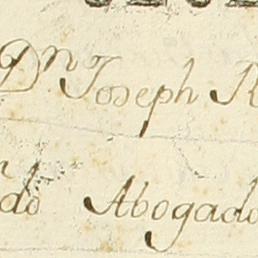 Dn Joseph R
do Abogado